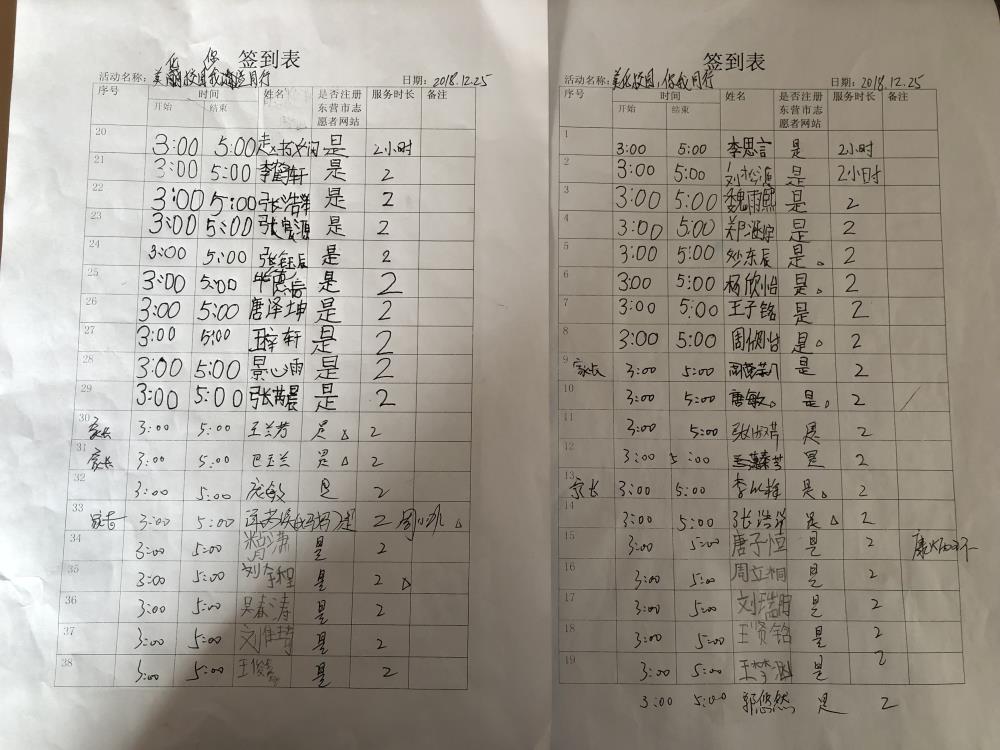 签到表
活动名称：美化校园 保 同行 日期：2018.12.25
序号 时间 姓名 是否注册东营市志愿者网站 服务时长 备注
开始 结束
20 3:00 5:00 是 2小时
21 3:00 5:00 李鹤轩 是 2
22 3:00 5:00 张浩洋 是 2
23 3:00 5:00 张宸源 是 2
24 3:00 5:00 张钰辰 是 2
25 3:00 5:00 是 2
26 3:00 5:00 唐泽坤 是 2
27 3:00 5:00 王梓轩 是 2
28 3:00 5:00 景心雨 是 2
29 3:00 5:00 张芮晨 是 2
30 家长 3:00 5:00 王兰芳 是 2
31 家长 3:00 5:00 巴玉兰 是 2
32 3:00 5:00 庞敏 是 2
33 3:00 5:00 2
34 3:00 5:00 潇 是 2
35 3:00 5:00 刘 程 是 2
36 3:00 5:00 吴森涛 是 2
37 3:00 5:00 刘 是 2
38 3:00 5:00 王俊 是 2
签到表
活动名称：美化校园，你我同行 日期：2018.12.25
序号 时间 姓名 是否注册东营市志愿者网站 服务时长 备注
开始 结束
1 3:00 5:00 李思言 是 2小时
2 3:00 5:00 刘松源 是 2小时
3 3:00 5:00 魏雨熙 是 2
4 3:00 5:00 郑涵 是 2
5 3:00 5:00 东辰 是 2
6 3:00 5:00 杨欣怡 是 2
7 3:00 5:00 王子铭 是 2
8 3:00 5:00 周欣怡 是 2
9 家长 3:00 5:00 是 2
10 3:00 5:00 唐敏 是 2
11 3:00 5:00 张 是 2
12 3:00 5:00 是 2
13 家长 3:00 5:00 李 是 2
14 3:00 5:00 张浩 是 2
15 3:00 5:00 唐子恒 是 2
16 3:00 5:00 周立桐 是 2
17 3:00 5:00 刘瑞 是 2
18 3:00 5:00 王贤铭 是 2
19 3:00 5:00 王梦涵 是 2
3:00 5:00 郭悠然 是 2